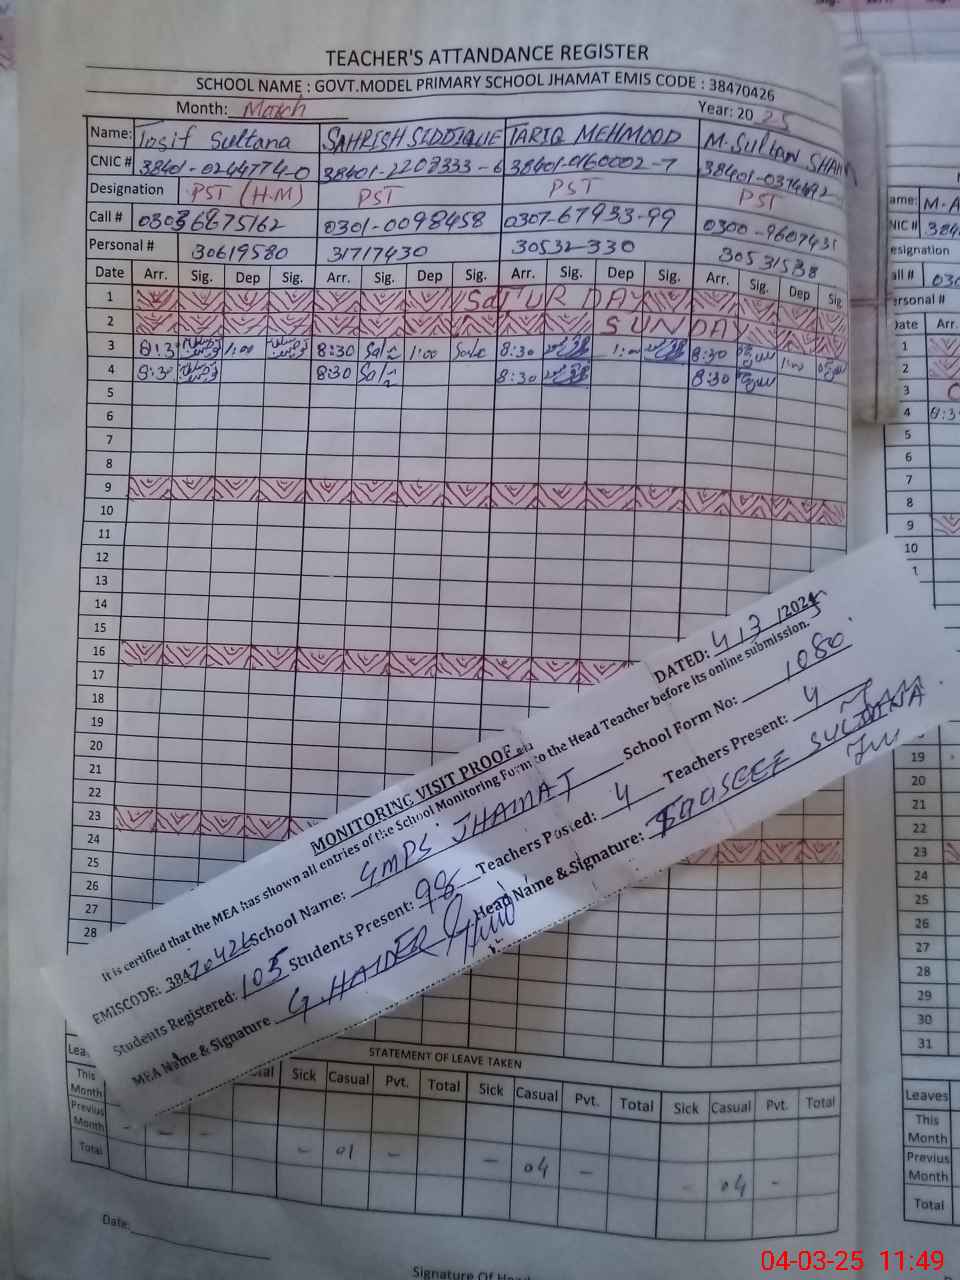 TEACHER'S ATTANDANCE REGISTER
SCHOOL NAME : GOVT.MODEL PRIMARY SCHOOL JHAMAT EMIS CODE : 38470426
Month: March Year: 20 25
Name: Tosif Sultana SAHRISH SIDDIQUE TARIQ MEHMOOD M. Sultan SHAH
CNIC # 38401-0244774-0 38401-2207333-6 38401-0160002-7 38401-0374692-
Designation PST (H.M) PST PST PST
Call # 03036675162 0301-0098458 0307-67933-99 0300-9607431
Personal # 30619580 31717430 30532-330 30531538
Date Arr. Sig. Dep Sig. Arr. Sig. Dep Sig. Arr. Sig. Dep Sig. Arr. Sig. Dep Sig
1 SATUR DAY
2 SUNDAY
3 8:3 1:00 8:30 1:00 8:30 1:00 8:30 1:00
4 8:30 8:30 8:30 8:30
5
6
7
8
9
10
11
12
13
14
15
16
17
18
19
20
21
22
23
24
25
26
27
28
MONITORING VISIT PROOF DATED: 4/3/2025
It is certified that the MEA has shown all entries of the School Monitoring Form to the Head Teacher before its online submission.
EMISCODE: 38470426 School Name: GMPS JHAMAT School Form No: 1080
Students Registered: 105 Students Present: 98 Teachers Posted: 4 Teachers Present: 4
MEA Name & Signature G. HAIDER Head Name & Signature: SULTANA
STATEMENT OF LEAVE TAKEN
Lea
Sick Casual Pvt. Total Sick Casual Pvt. Total Sick Casual Pvt. Total
This Month
Previus Month - - - - 01 - - 04 - - 04 -
Total
Date:
Signature Of Head
ame: M.A
NIC # 384
esignation
all # 030
ersonal #
ate Arr.
1
2
3
4 8:3
5
6
7
8
9
10
19
20
21
22
23
24
25
26
27
28
29
30
31
Leaves
This Month
Previus Month
Total
04-03-25 11:49